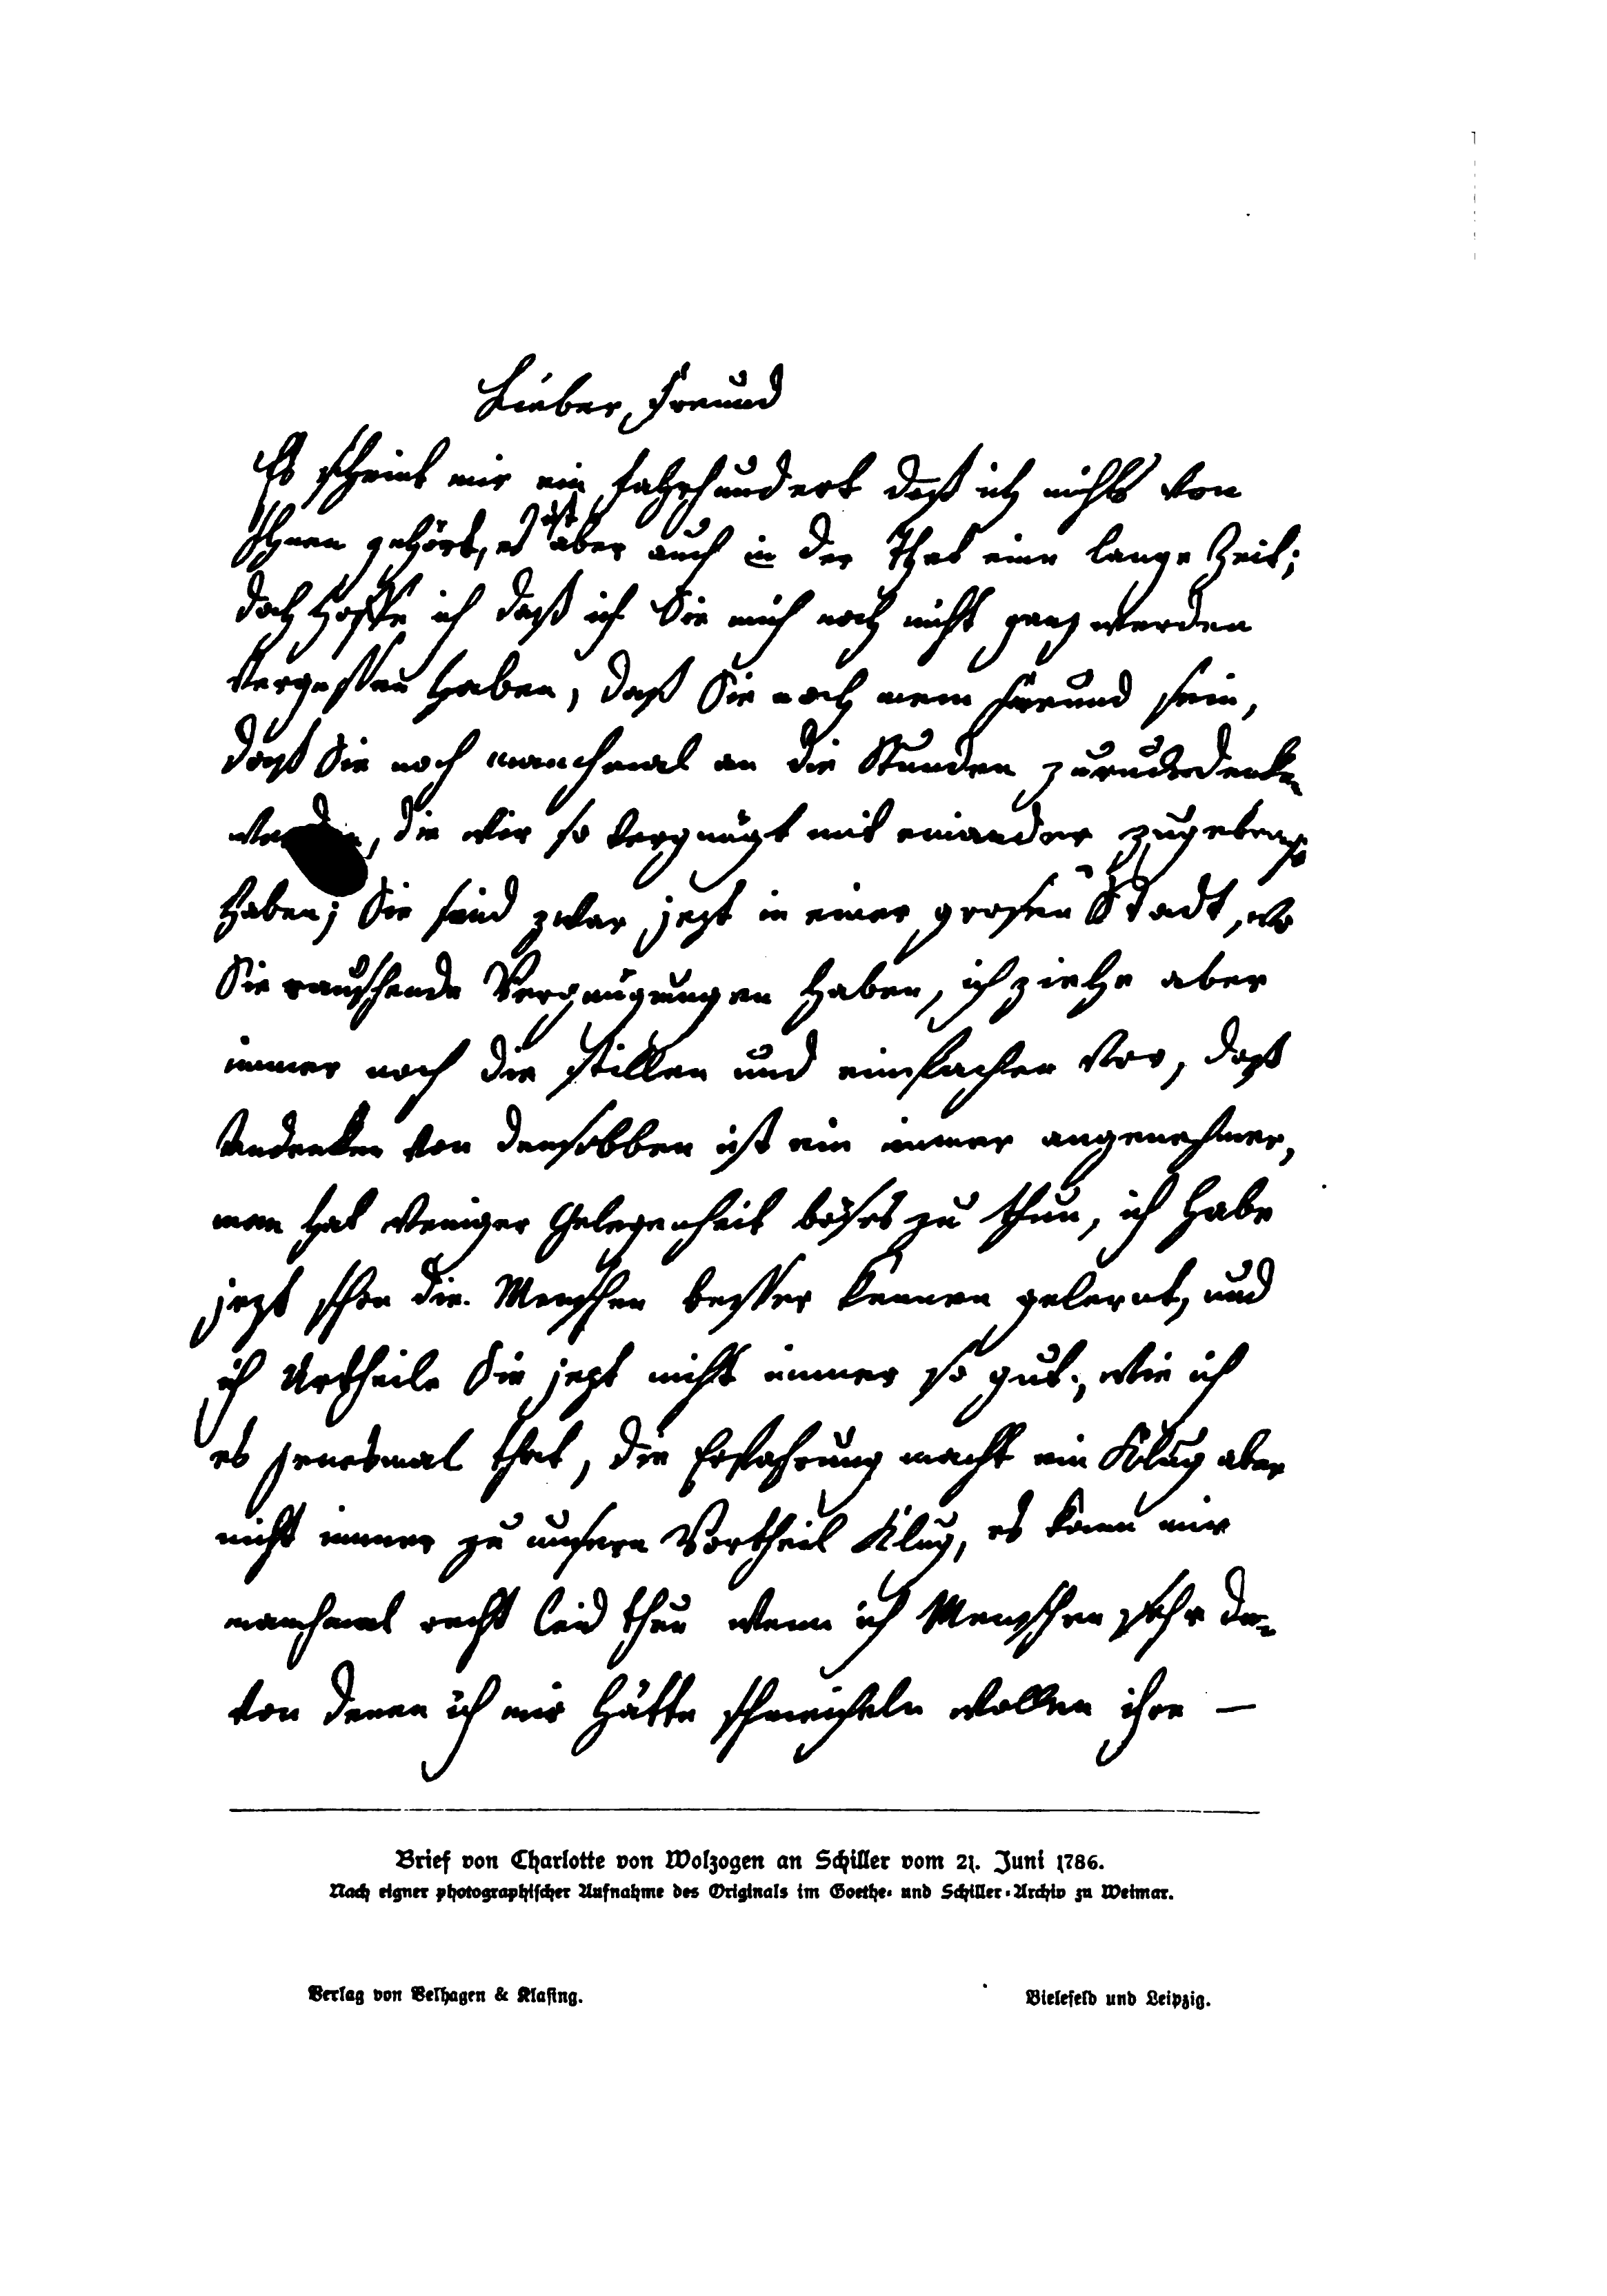 Lieber Freund
Es scheint mir ein Jahrhundert daß ich nichts von
Ihnen gehört, es ist aber auch in der That eine lange Zeit;
doch hoffe ich daß ich Sie mich noch nicht ganz werden
vergessen haben, daß Sie noch mein Freund sein,
daß Sie noch manchmal an die Stunden zurückdenken
werden, die wir so vergnügt mit einander zugebracht
haben; Sie sind zwar jezt in einer grosen Stadt, wo
Sie rauschende Vergnügungen haben, ich ziehe aber
immer noch die stillen und einfachen vor, daß
Andenken von denselben ist ein immer angenehmer,
man hat weniger Gelegenheit böses zu thun, ich habe
jezt schon die Menschen besser kennen gelernt, und
ich Urtheile Sie jezt nicht immer so gut, wie ich
es jenesmal that, die Erfahrung macht ein Klug aber
nicht immer zu unsern Vortheil Klug, es kann mir
manchmal recht leid thun wenn ich Menschen sehe
von denen ich mir hätte schmeicheln wollen ihre —
Brief von Charlotte von Wolzogen an Schiller vom 21. Juni 1786.
Nach eigner photographischer Aufnahme des Originals im Goethe- und Schiller-Archiv zu Weimar.
Verlag von Velhagen & Klasing.
Bielefeld und Leipzig.